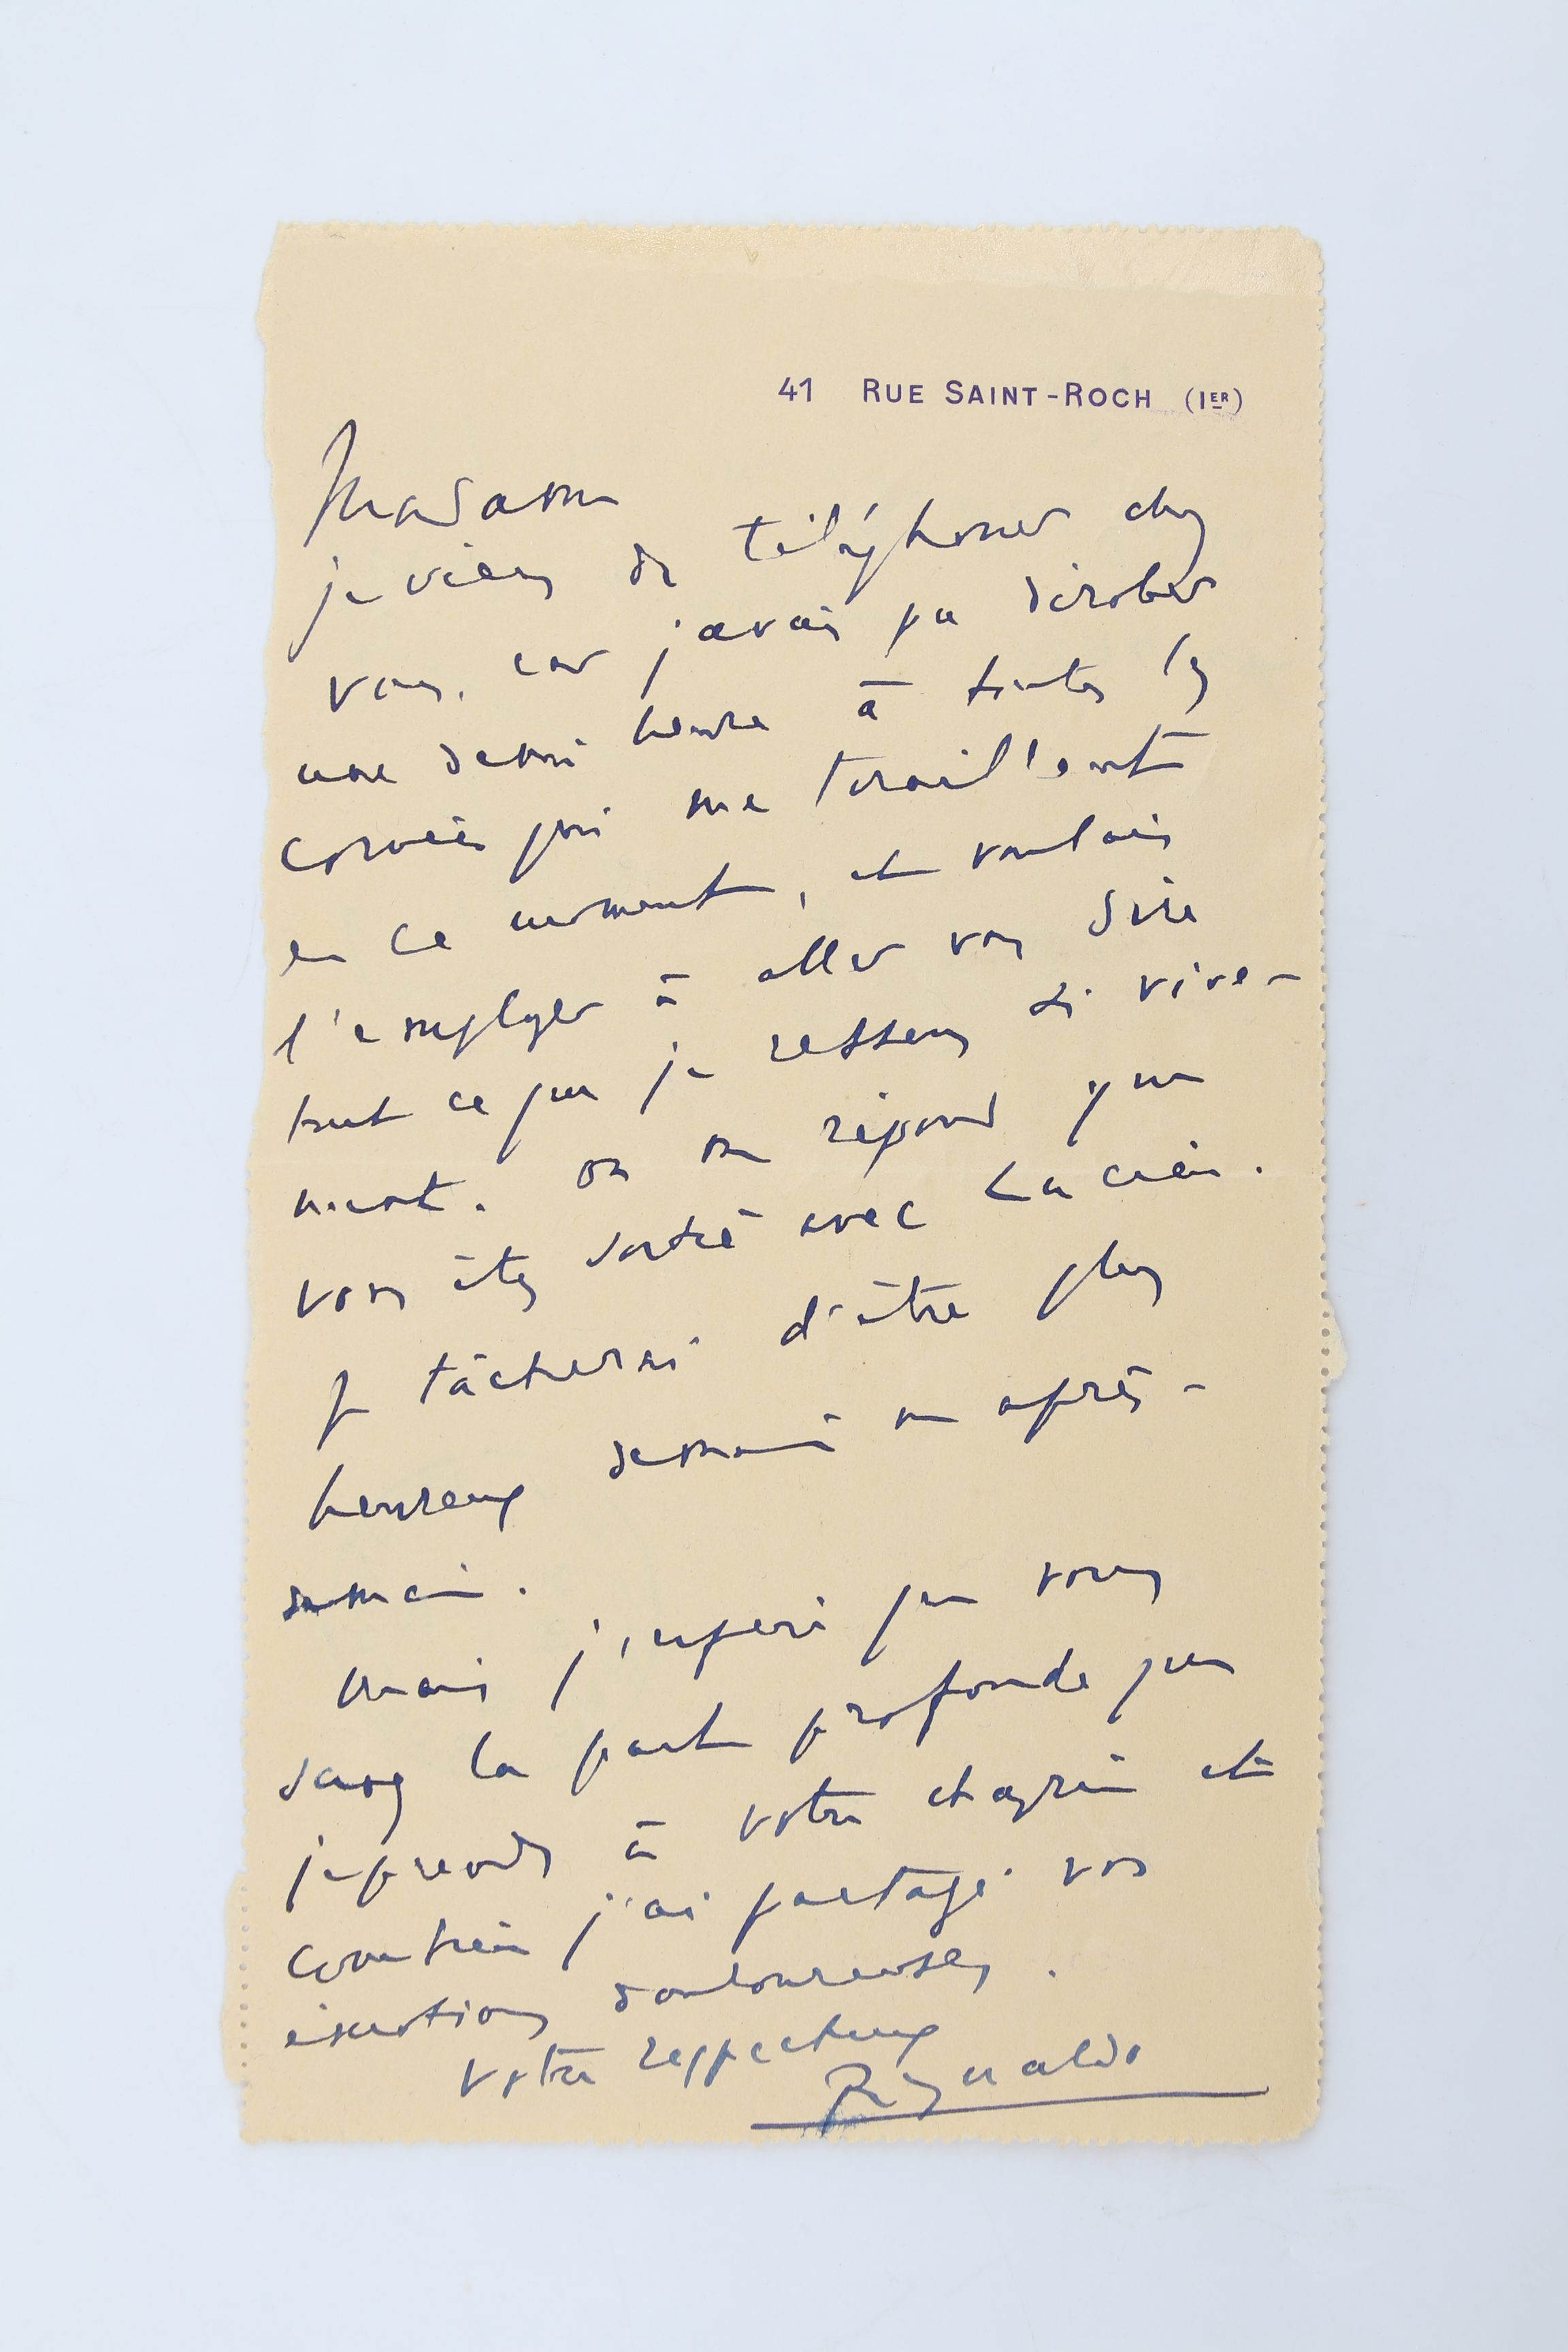 41 RUE SAINT-ROCH (IER)
Madame
je viens de téléphoner chez
vous, car j'avais pu dérober
une demi heure à toutes les
corvées qui me tiraillent
en ce moment, et voulais
l'employer à aller vous dire
tout ce que je ressens si vive-
ment. On me répond que
vous êtes sortie avec Lucien.
Je tâcherai d'être plus
heureux demain ou après-
demain.
Mais j'espère que vous
savez la part profonde que
je prends à votre chagrin et
combien j'ai partagé vos
émotions douloureuses.
Votre respectueux
Reynaldo